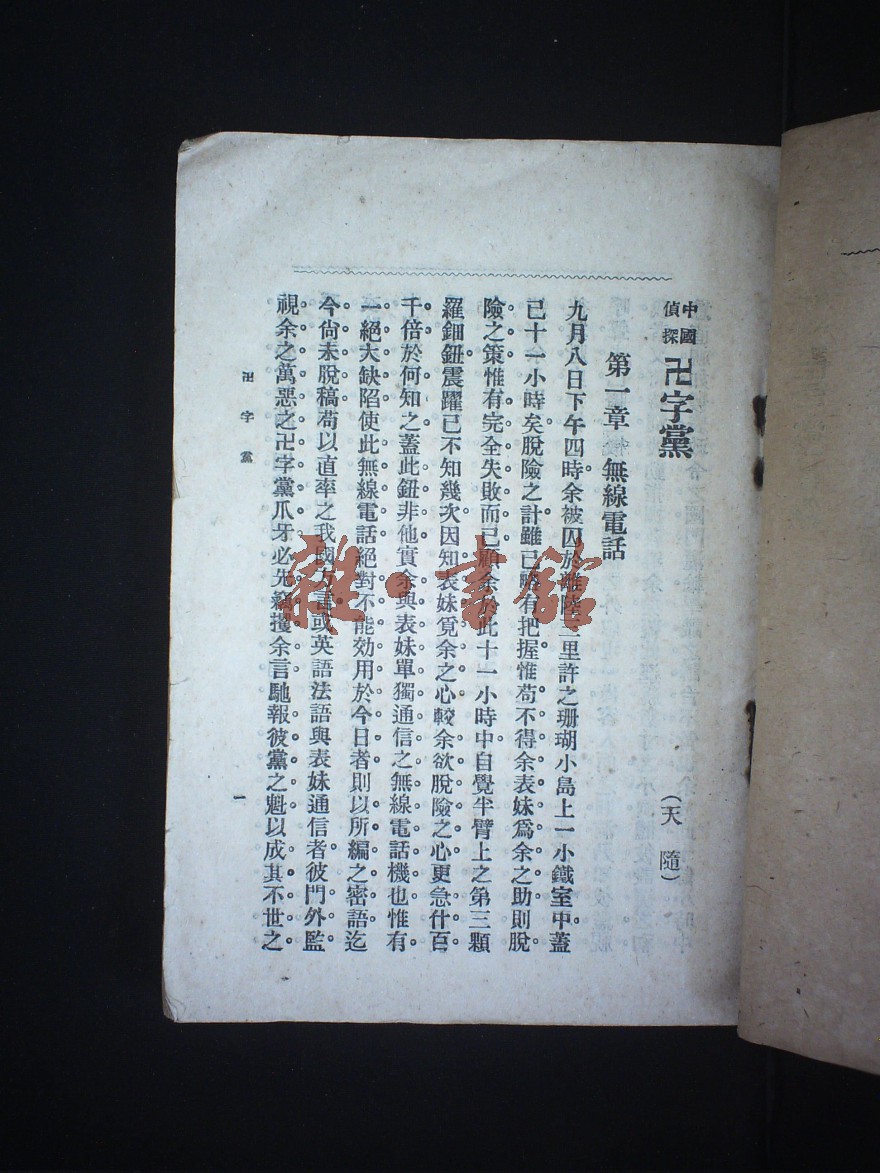 中國偵探 卍字黨 (天隨)
第一章 無線電話
九月八日下午四時余被囚於離陸 里許之珊瑚小島上一小鐵室中蓋
已十一小時矣脫險之計雖已略有把握惟苟不得余表妹爲余之助則脫
險之策惟有完全失敗而已顧余於此十一小時中自覺半臂上之第三顆
羅鈿鈕震躍已不知幾次因知表妹覓余之心較余欲脫險之心更急什百
千倍於何知之蓋此鈕非他實余與表妹單獨通信之無線電話機也惟有
一絕大缺陷使此無線電話絕對不能効用於今日者則以所編之密語迄
今尙未脫稿苟以直率之我國 言或英語法語與表妹通信者彼門外監
視余之萬惡之卍字黨爪牙必先 攫余言馳報彼黨之魁以成其不世之
卍字黨
一
雜·書館